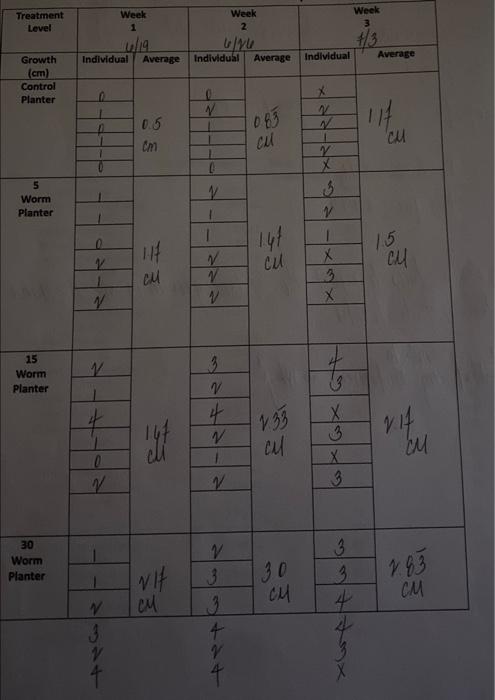 Treatment Level
Week 1
6/19
Week 2
6/26
Week 3
7/3
Growth (cm)
Individual Average Individual Average Individual Average
Control Planter
0 0 X
1 2 2
0 1 2
1 1 1
1 1 2
0 0 X
0.5 cm
0.83 cm
1.17 cm
5 Worm Planter
1 2 3
1 1 2
0 1 1
2 2 X
1 2 3
2 2 X
1.17 cm
1.67 cm
1.5 cm
15 Worm Planter
2 3 4
1 2 3
4 4 X
1 2 3
0 1 X
2 2 3
1.67 cm
2.33 cm
2.17 cm
30 Worm Planter
1 2 3
1 3 3
2 3 4
2.17 cm
3.0 cm
2.83 cm
3 4 4
2 2 3
4 4 X